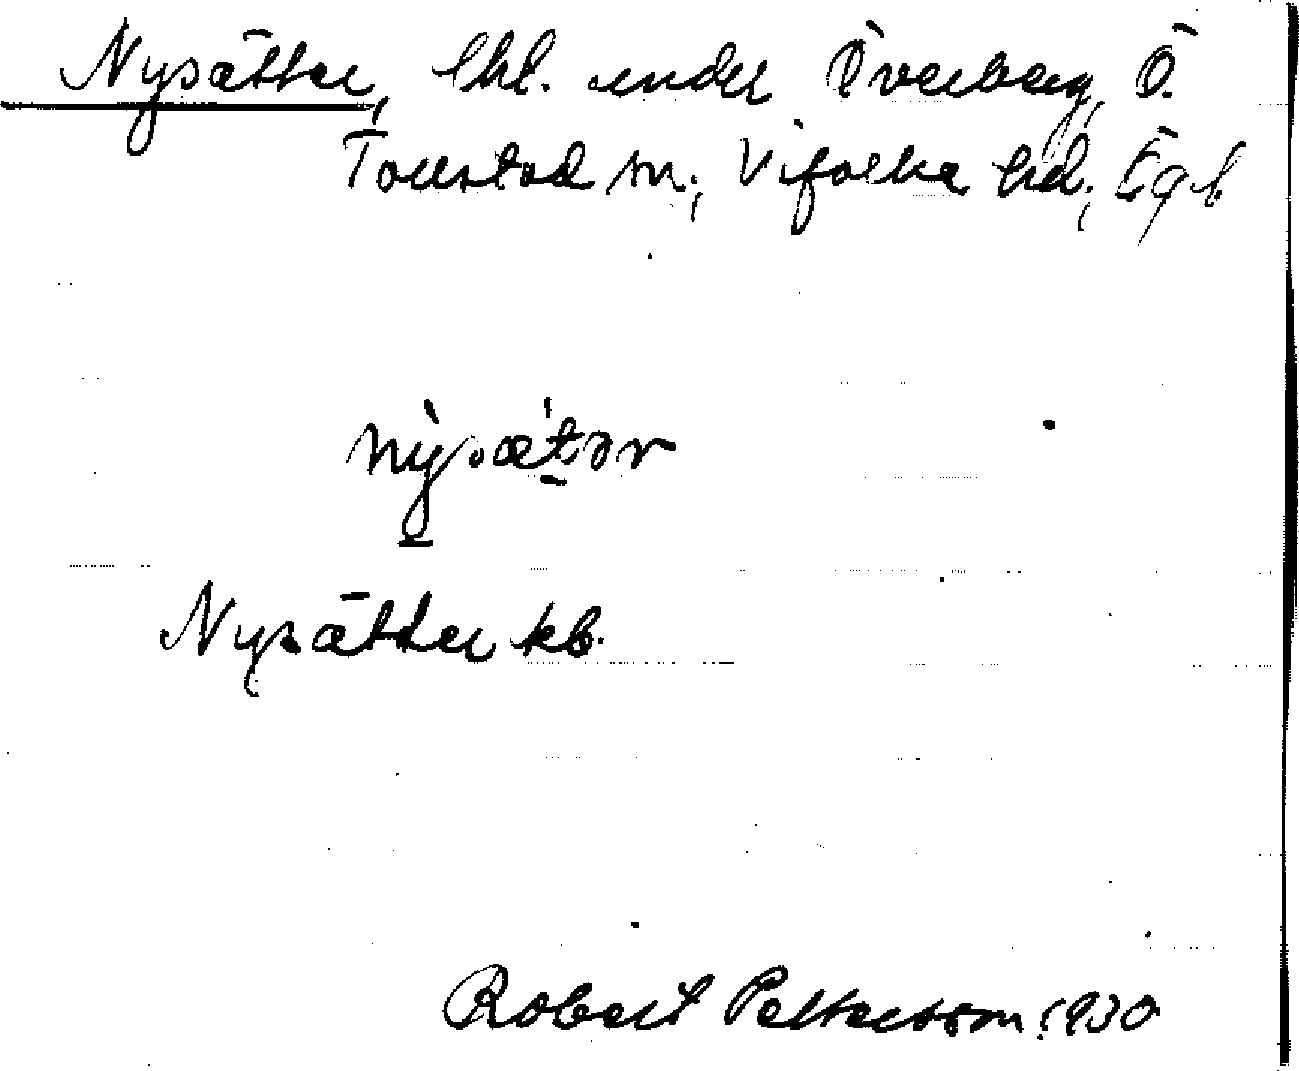 Nysätter, lht. under Överberg, Ö.
Tollstad sn., Vifolka hd., Ögl
nysætər
Nysätter kb.
Robert Pettersson 1930